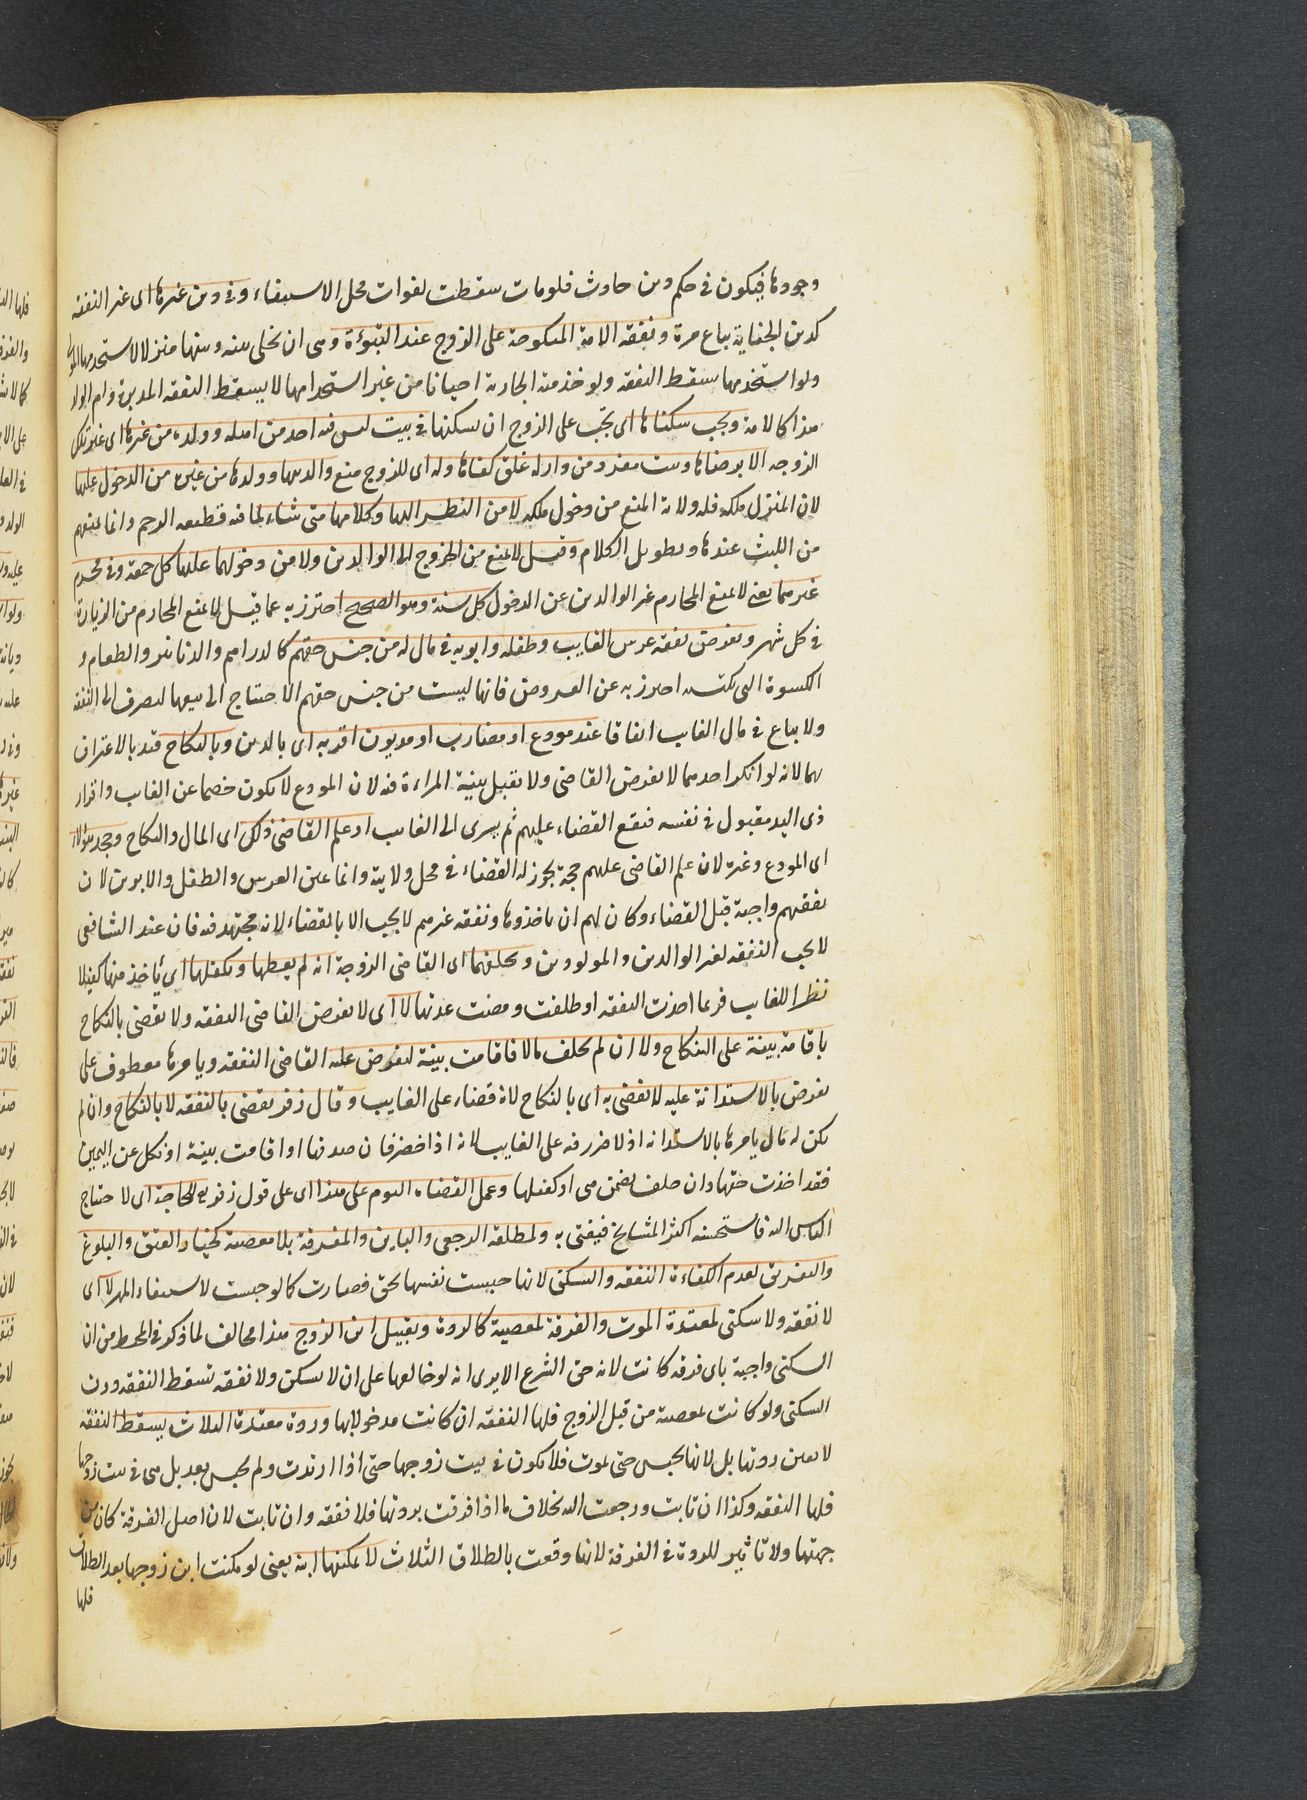 وجودها فيكون في حكم دين حادث فلو مات سقطت لفوات محل الاستيفاء وفي دين غيرها اى غير النفقة
كدين الجناية يباع مرة ونفقة الامة المنكوحة على الزوج عند التبوءة وهى ان يخلى بينه وبينها منزلا لا يستخدمها المولى
ولو استخدمها سقط النفقة ولو خدمته الجارية احيانا من غير استخدامها لا يسقط النفقة المدبرة وام الولد
هذا كالامة ويجب سكناها اى تجب على الزوج ان يسكنها في بيت ليس فيه احد من اهله وولده من غيرها اى غير تلك
الزوجة الا برضاها وبيت مفرد من دار له غلق كفاها وله اى للزوج منع والديها وولدها من غيره من الدخول عليها
لان المنزل ملكه فله ولاية المنع من دخول ملكه لا من النظر اليها وكلامها متى شاء لما فيه قطيعة الرحم وانما يمنعهم
من اللبث عندها وتطويل الكلام وقيل لا يمنع من الخروج الى الوالدين ولا من دخولهما عليها كل جمعة وفى محرم
غيرهما يعنى لا يمنع المحارم غير الوالدين عن الدخول كل سنة وهو الصحيح احترز به عما قيل لا يمنع المحارم من الزيارة
في كل شهر ويفرض نفقة عرس الغايب وطفله وابويه في مال له من جنس حقهم كالدراهم والدنانير والطعام و
الكسوة التى تكتسه احترز به عن العروض فانها ليست من جنس حقهم الاحتياج الى بيعها لتصرف الى النفقة
ولا يباع في مال الغايب اتفاقا عند مودع او مضارب او مديون اقر به اى بالدين وبالنكاح قيد بالاعتراف
بهما لانه لو انكر احدهما لا يفرض القاضى ولا تقبل بينة المراءة فيه لان المودع لا يكون خصما عن الغايب واقرار
ذى اليد مقبول في نفسه فيقع القضاء عليهم ثم يسرى الى الغايب او علم القاضى ذلك اى المال والنكاح وجحد هؤلاء
اى المودع وغيره لان علم القاضى عليهم حجة يجوز له القضاء في محل ولايته وانما عين العرس والطفل والابوين لان
نفقتهم واجبة قبل القضاء وكان لهم ان ياخذوها ونفقة غيرهم لا يجب الا بالقضاء لانه مجتهد فيه فان عند الشافعى
لا يجب النفقة لغير الوالدين والمولودين ويحلفها اى القاضى الزوجة انه لم يعطها ويكفلها اى ياخذ منها كفيلا
نظرا للغايب فربما اخذت النفقة او طلقت ومضت عدتها لا اى لا يفرض القاضى النفقة ولا يقضى بالنكاح
باقامة بينة على النكاح ولا ان لم يخلف مالا فاقامت بينة ليفرض عليه القاضى النفقة ويامرها معطوف على
يفرض بالاستدانة عليه لا يقضى به اى بالنكاح لانه قضاء على الغايب وقال زفر يقضى بالنفقة لا بالنكاح وان لم
يكن له مال يامرها بالاستدانة اذ لا ضرر فيه على الغايب لانه اذا حضر فان صدقها او اقامت بينة او نكل عن اليمين
فقد اخذت حقها وان حلف يضمن هى او كفيلها وعمل القضاة اليوم على هذا اى على قول زفر للحاجة اى لاحتياج
الناس اليه فاستحسنه اكثر المشايخ فيفتى به ولمطلقة الرجعى والباين والمفرقة بلا معصية كخيار العتق والبلوغ
والتفريق لعدم الكفاءة النفقة والسكنى لانها حبست نفسها بحق فصارت كما لو حبست لاستيفاء المهر لا اى
لا نفقة ولا سكنى لمعتدة الموت والفرقة لمعصية كالردة وتقبيل ابن الزوج هذا مخالف لما ذكر في المحيط من ان
السكنى واجبة باى فرقة كانت لانه حق الشرع الا يرى انه لو خالعها على ان لا سكنى ولا نفقة تسقط النفقة دون
السكنى ولو كانت لمعصية من قبل الزوج فلها النفقة ان كانت مدخولا بها وردة معتدة الثلاث يسقط النفقة
لا لعين ردتها بل لانها تحبس حتى تموت فلا يكون في بيت زوجها حتى اذا ارتدت ولم تحبس بعد بل هى في بيت زوجها
فلها النفقة وكذا ان تابت ورجعت اليه بخلاف ما اذا فرقت بردتها فلا نفقة وان تابت لان اصل الفرقة كان من
جهتها ولا تاثير للردة في الفرقة لانها وقعت بالطلاق الثلاث لا تمكينها ابنه يعنى لو مكنت ابن زوجها بعد الطلاق
فلها